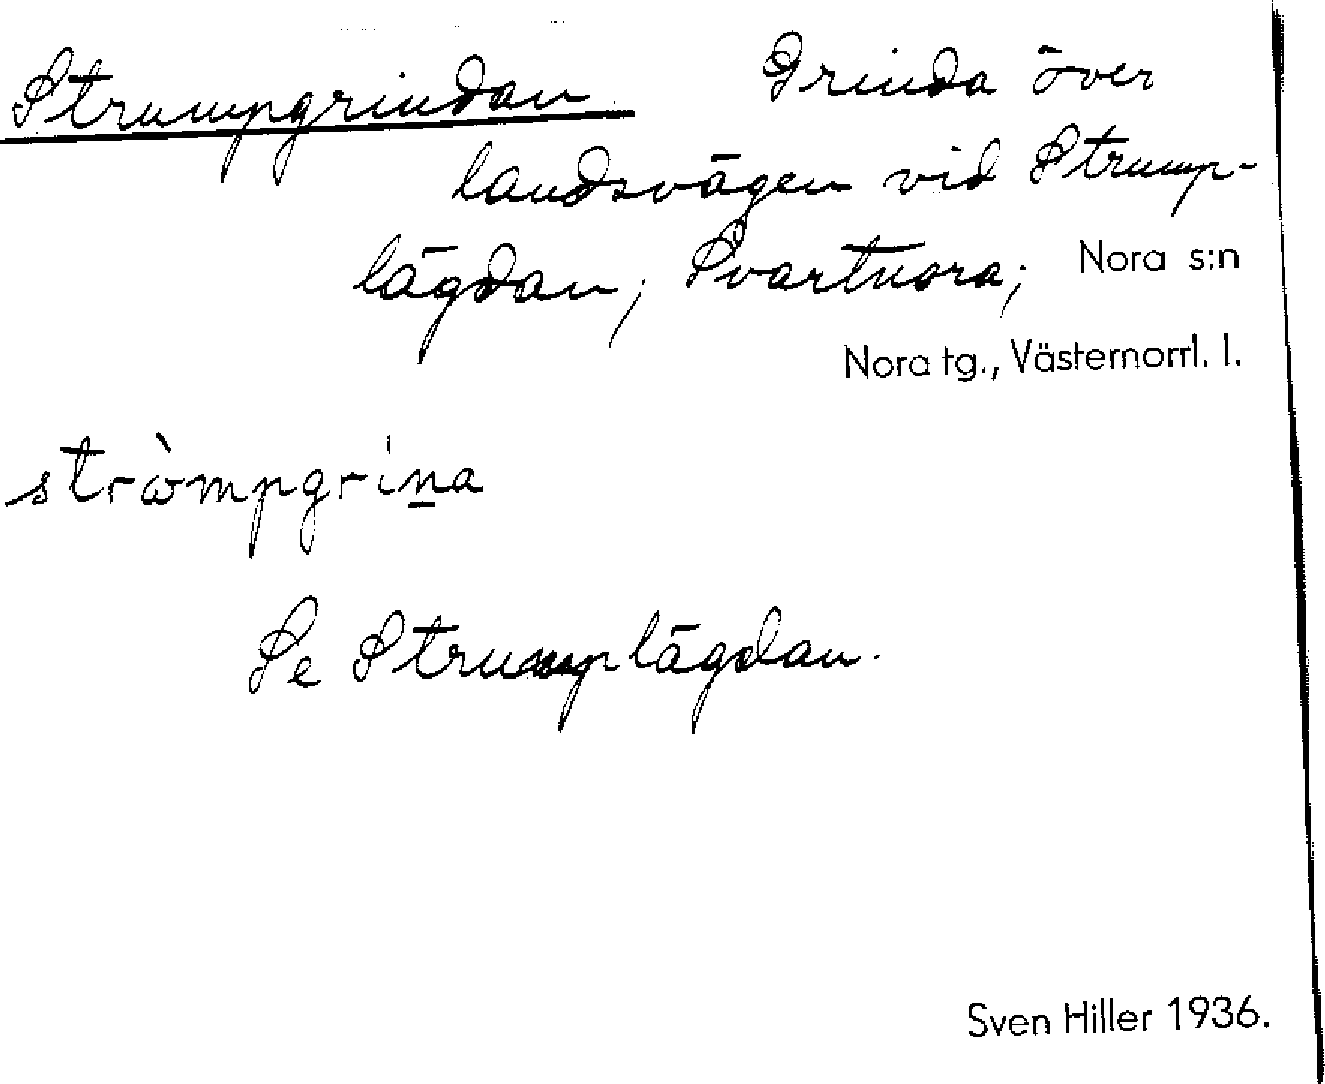 Strumpgrindan Grinda över
landsvägen vid Strump-
lägdan, Svartnora; Nora s:n
Nora tg., Västernorrl. l.
strὼmpgrin̲a
Se Strumplägdan.
Sven Hiller 1936.